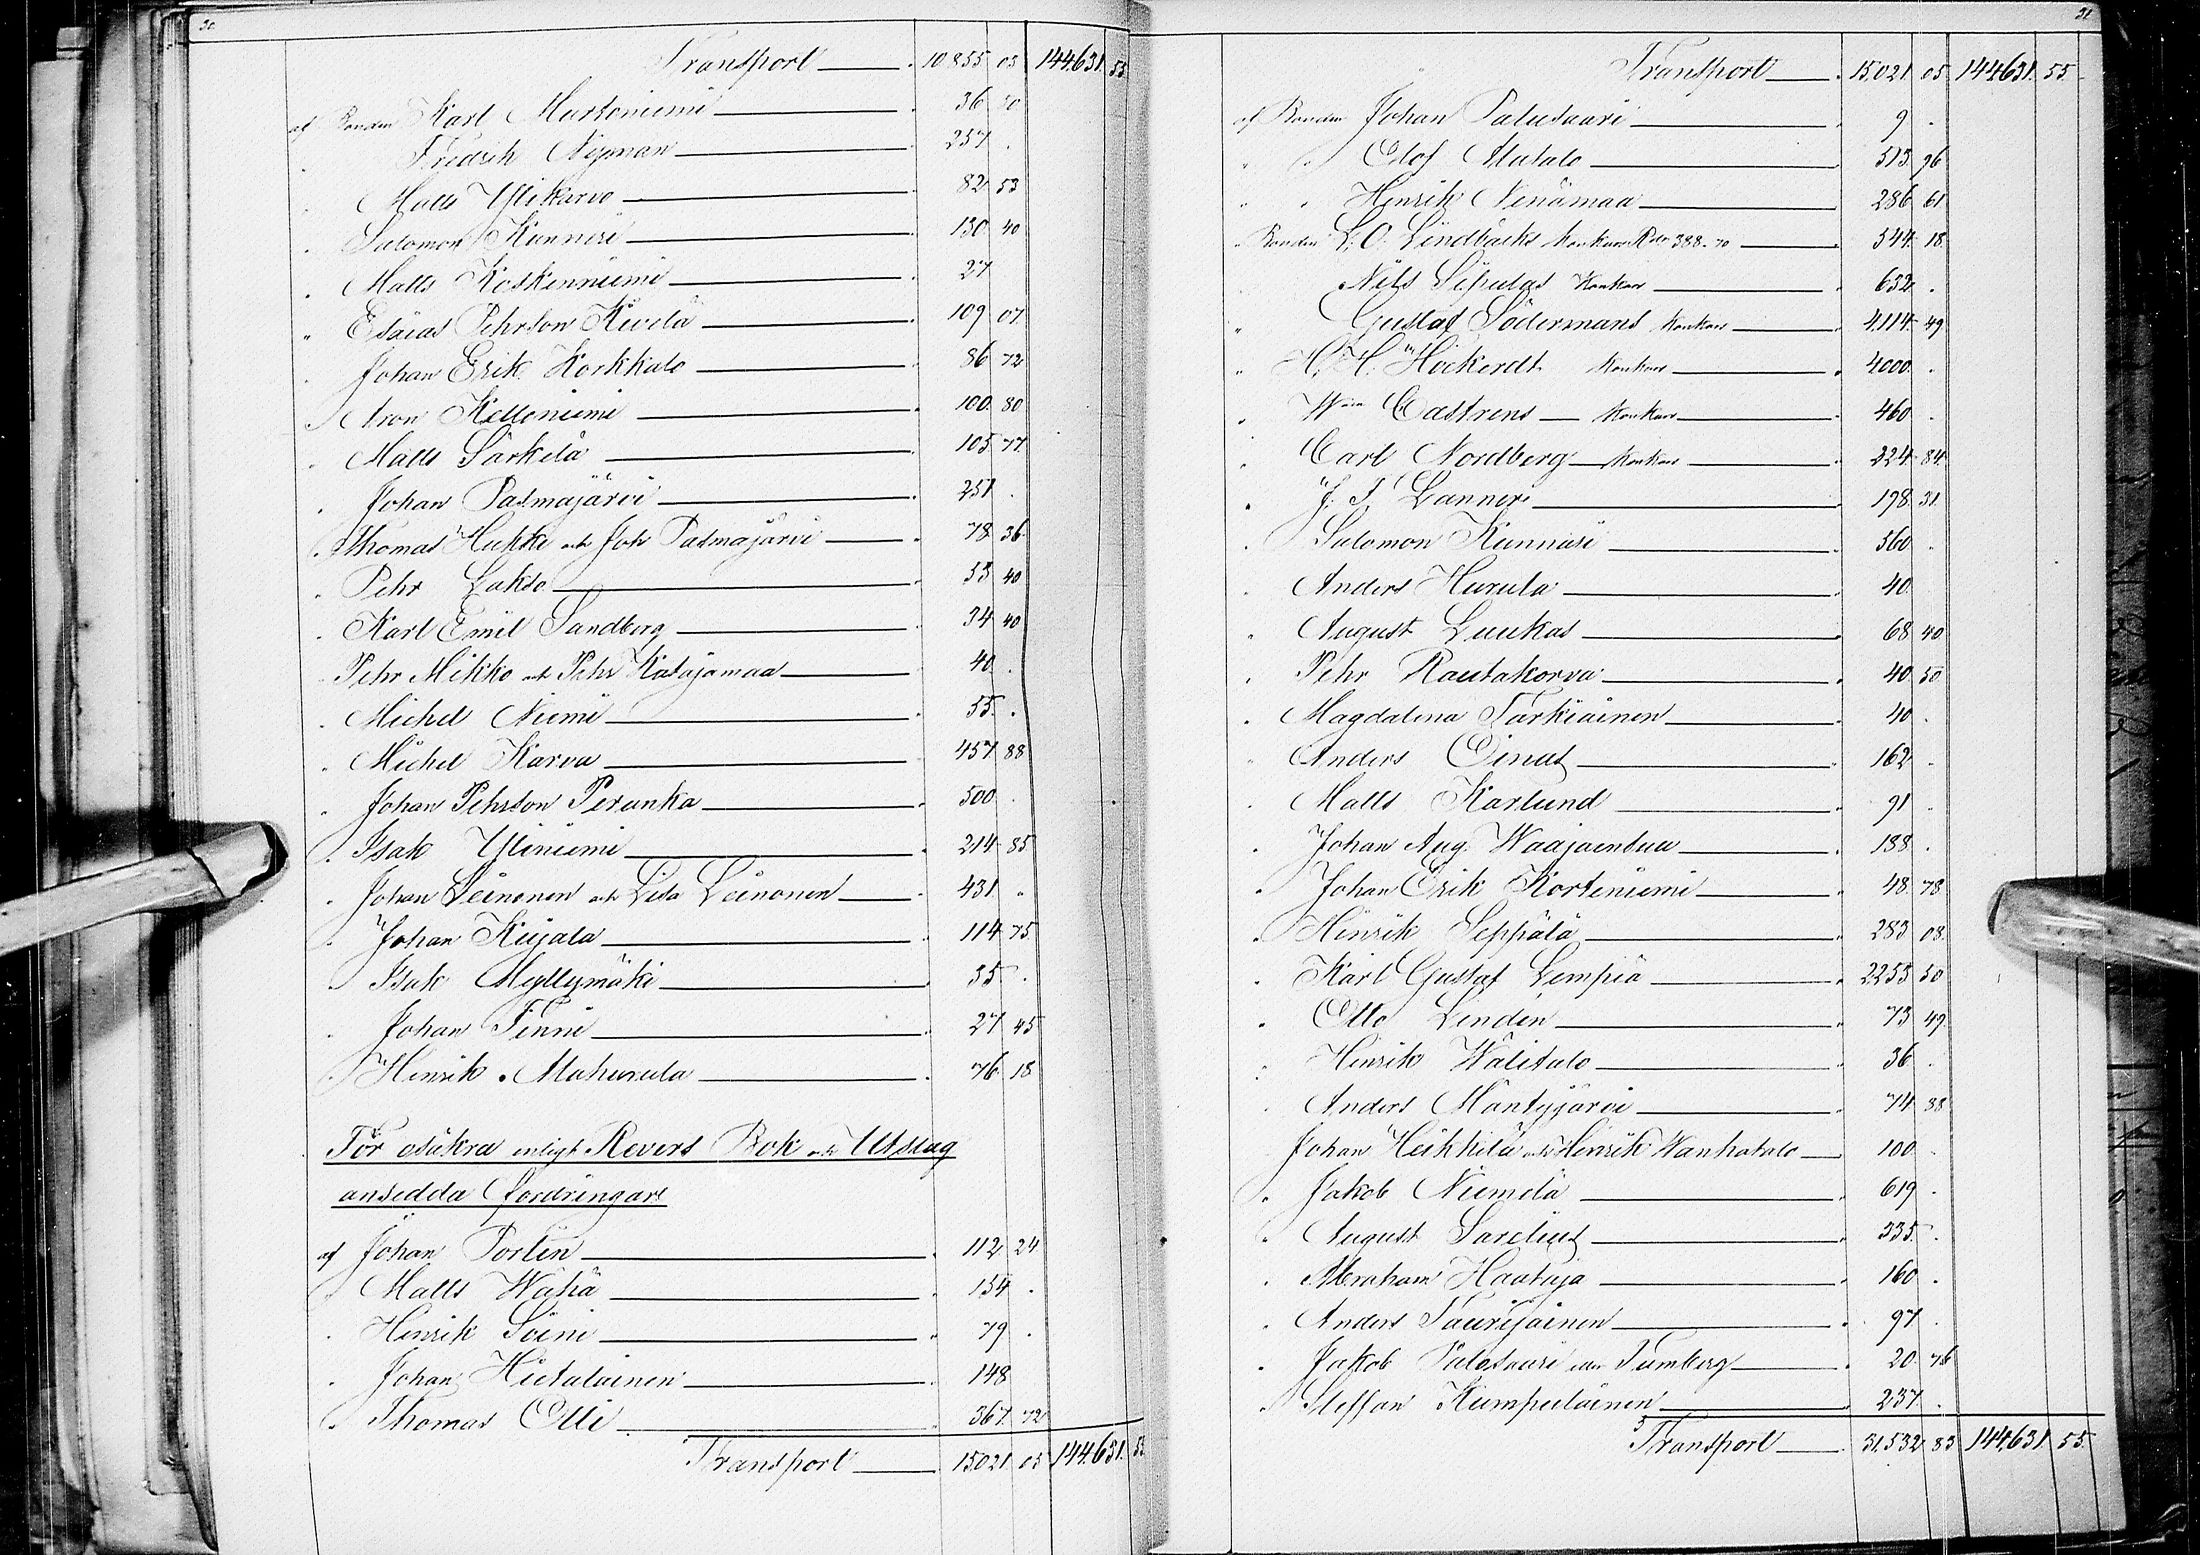 30
Transport 10 855 05 144,631. 55
af Bonden Karl Murtoniemi 36 70
" Fredrik Nyman 257 .
" Matts Ylikarvo 82 53
" Salomon Kunnari 130 40
" Matts Koskenniemi 27
" Esaias Pehrson Kivelä 109 07
" Johan Erik Korkkalo 86 72
" Aron Kelloniemi 100 80
" Matts Särkelä 105 77
" Johan Pasmajärvi 251 .
" Thomas Hukka och Joh Pasmajärvi 78 36
" Pehr Lakso 53 40
" Karl Emil Sandberg 34 40
" Pehr Mikko och Pehr Katajamaa 40 .
" Michel Niemi 55 .
" Michel Karva 457 88
" Johan Pehrson Peranka 500 .
" Isak Yliniemi 214 85
" Johan Leinonen och Lisa Leinonen 431 "
" Johan Kujala 114 75
" Isak Myllymäki 35 .
" Johan Finni 27 45
" Henrik Mahurula 76 18
För osäkra enligt Revers Bok och Utslag
ansedda fordringar
af Johan Portin 112 24
" Matts Wähä 154 .
" Henrik Soini 79 .
" Johan Hietalainen 148
" Thomas Olli 367 72
Transport 15021 05 144.631. 55
31
Transport 15.021 05 144631. 55
af Bonden Johan Palusaari 9 .
" " Olof Alatalo 513 96
" " Henrik Nenämaa 286 61
" Bonden L. O. Lindbäcks konkurs Rdr 388.70 544 18
Nils Sipulas Konkurs 652 .
" Gustaf Södermans Konkurs 4.114 49
" H. H. Höckerdt Konkurs 4000 .
" Wm Castrens Konkurs 460 .
" Carl Nordberg Konkurs 224 84
" J. I. Lanneri 198 31
" Salomon Kunnari 360 .
" Anders Hurula 40
" August Luukas 68 40
" Pehr Rautakorva 40 50
" Magdalena Tarkiainen 40 .
" Anders Oinas 162 .
" Matts Karlund 91 .
" Johan Aug. Waajaensuu 188 .
" Johan Erik Korteniemi 48 78
" Henrik Seppälä 283 08
" Karl Gustaf Lempiä 2253 50
" Otto Linden 73 49
" Henrik Wälitalo 36 .
" Anders Mäntyjärvi 74 38
Johan Heikkilä och Henrik Wanhatalo 100 .
" Jakob Niemelä 619 .
" August Sarelius 335 .
" Abraham Hautaja 160 .
" Anders Tauriainen 97 .
" Jakob Palosaari eller Tumberg 20 76
" Steffan Kumpulainen 237 .
Transport 31.532 83 144,631 55.